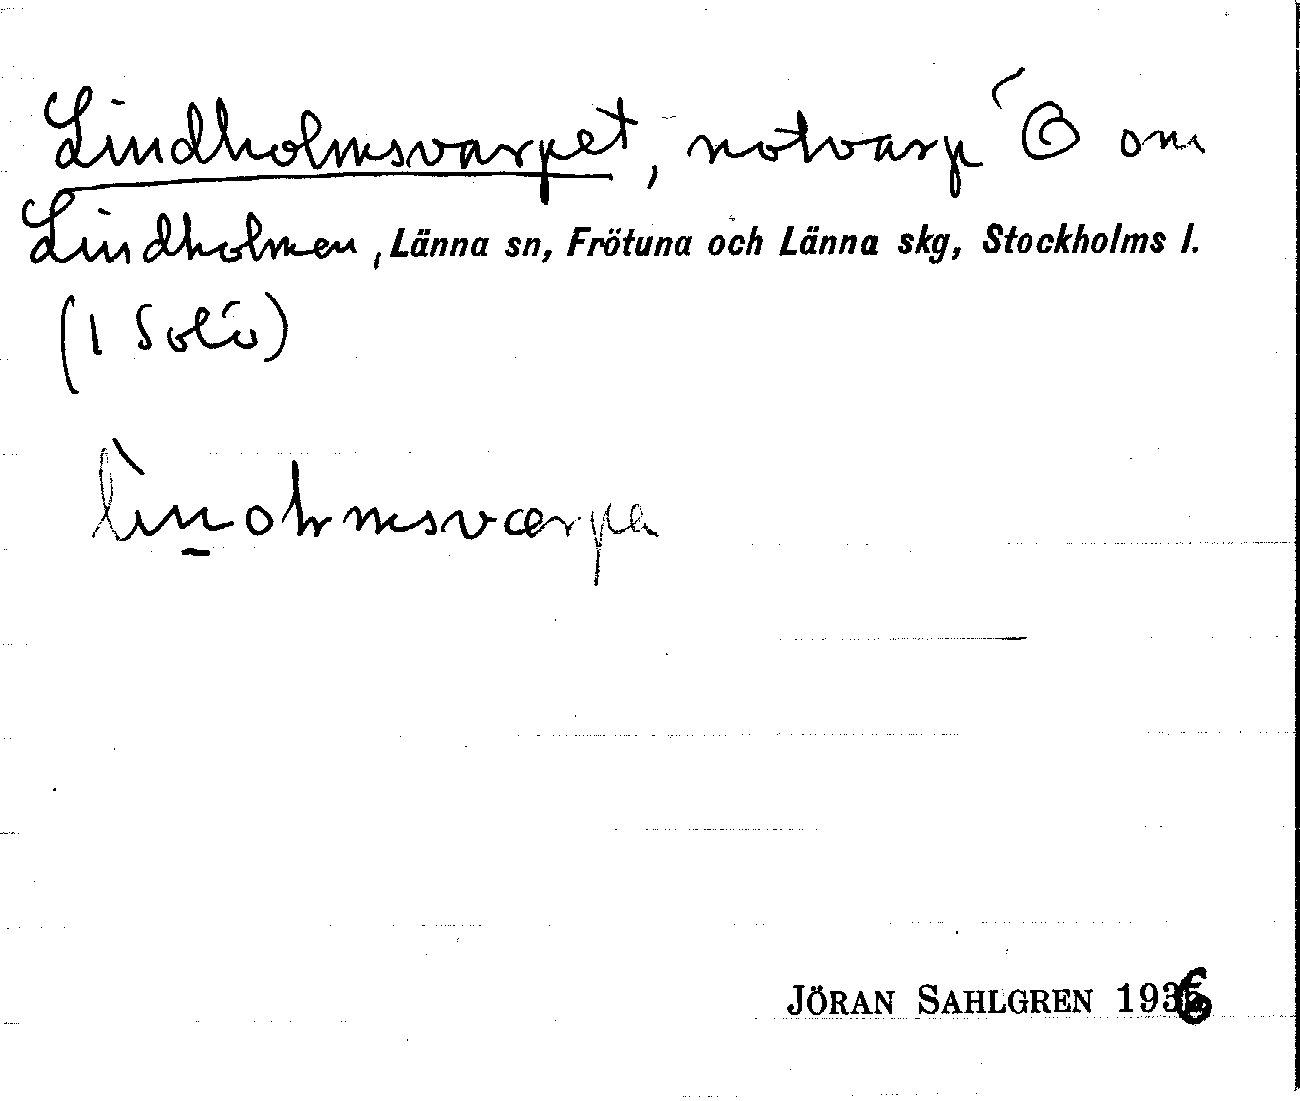 Lindholmsvarpet, notvarp Ö om
Lindholmen, Länna sn, Frötuna och Länna skg, Stockholms l.
(1 Solö)
JÖRAN SAHLGREN 1936